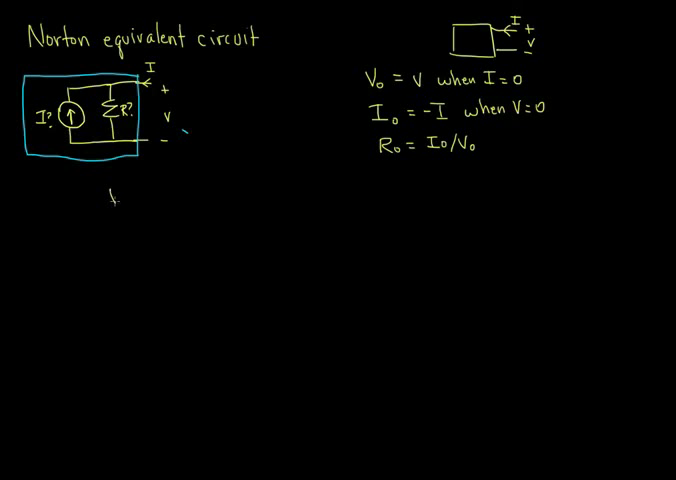 Norton equivalent circuit
I
+
I?
R?
V
-
I
+
V
-
V₀ = V when I=0
I₀ = -I when V=0
R₀ = I₀/V₀